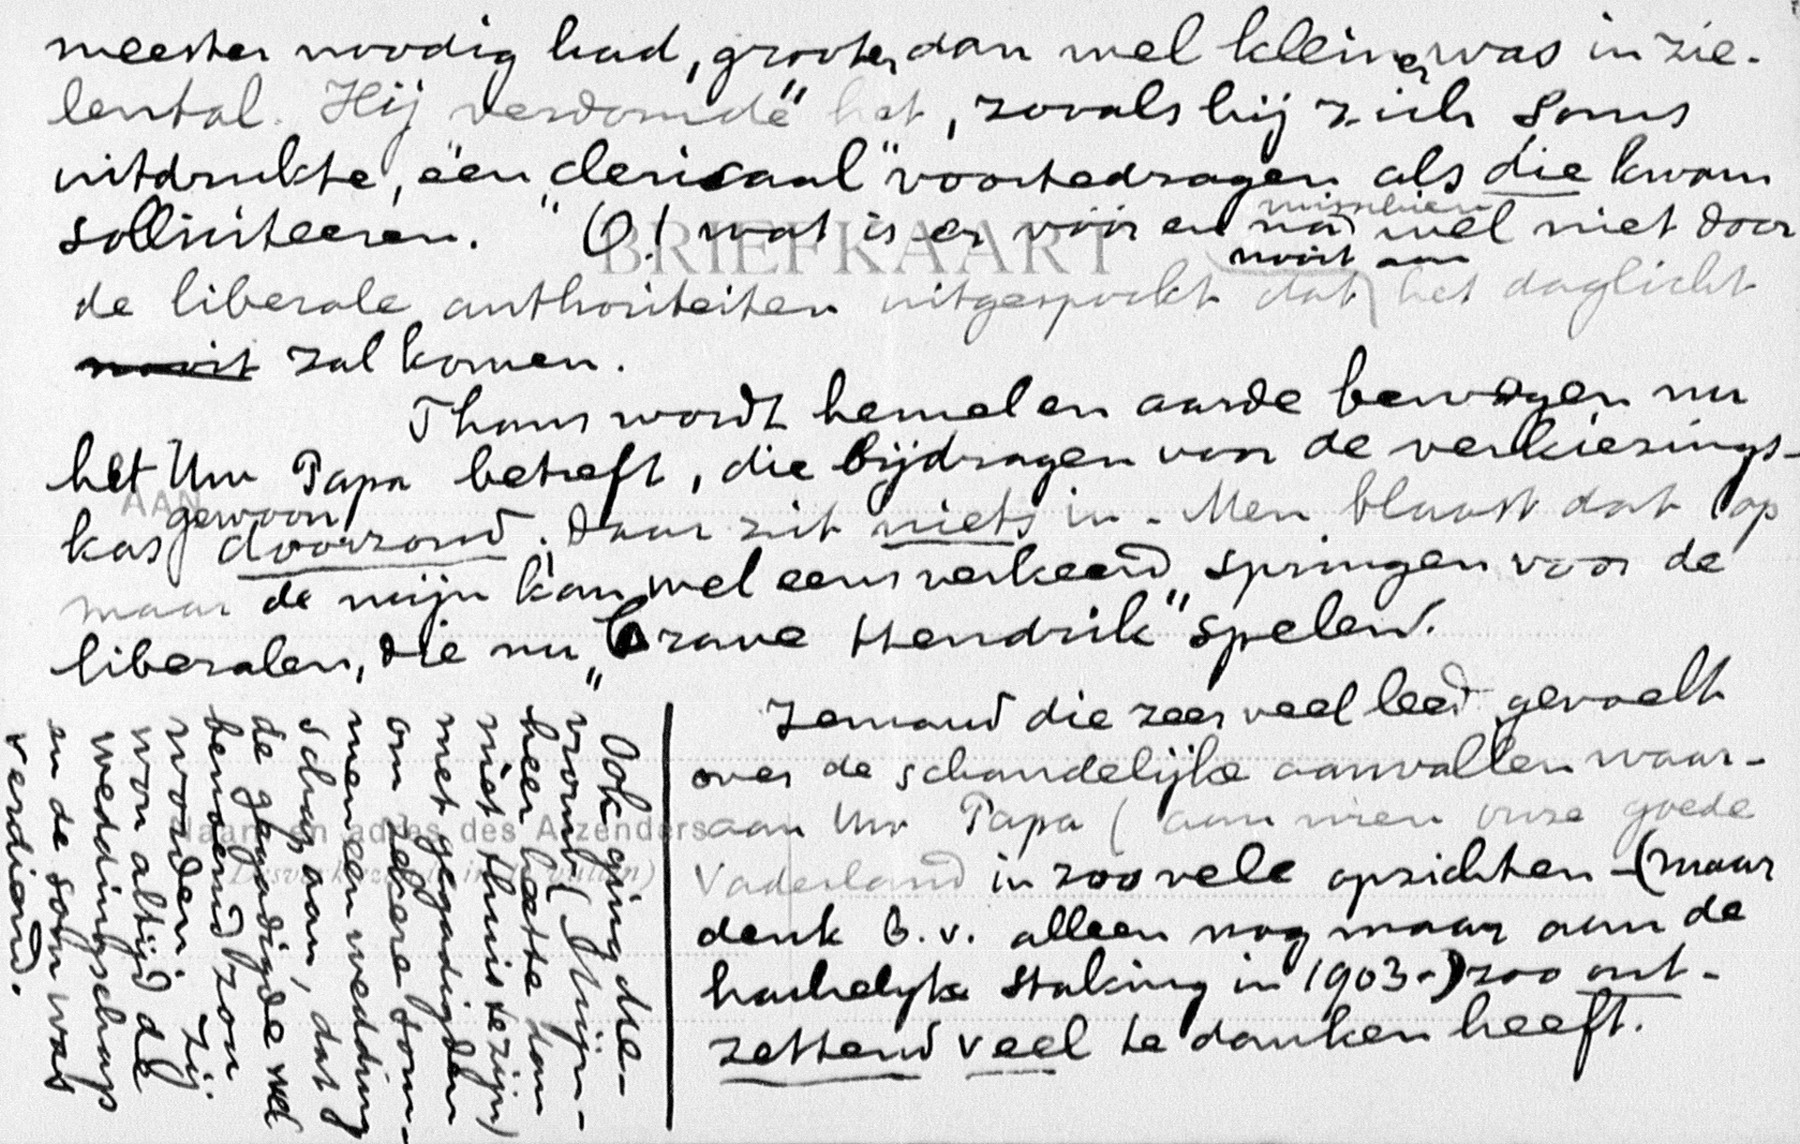 meester noodig had, grooter dan wel kleiner was in zie-
lental. Hij "verdomde" het, zooals hij zich soms
uitdrukte, een "clericaal" voortedragen als die kwam
solliciteeren. O! wat is er vóór en na misschien wel niet door
de liberale authoriteiten uitgespookt dat nooit aan het daglicht
nooit zal komen.
Thans wordt hemel en aarde bewogen nu
het Uw Papa betreft, die bijdragen van de verkiezings-
kas gewoon doorzond. Daar zit niets in. Men blaast dat op
maar de mijn kan wel eens verkeerd springen voor de
liberalen, die nu "brave Hendrik" spelen.
Iemand die zeer veel leed gevoelt
over de schandelijke aanvallen waar-
aan Uw Papa (aan wien onze goede
Vaderland in zoo vele opzichten - (maar
denk b.v. alleen nog maar aan de
hachelijke staking in 1903-) zoo ont-
zettend veel te danken heeft.
Ook ging die-
vromd (Mijn-
heer heette dan
niet thuis te zijn)
met gegadigden
om zekere som-
men een wedding
schap aan, dat
de gegadigde wel
benoemd zou
worden. Zij
won altijd de
weddingschap
en de som was
verdiend.
BRIEFKAART
AAN
Naam en adres des Afzenders